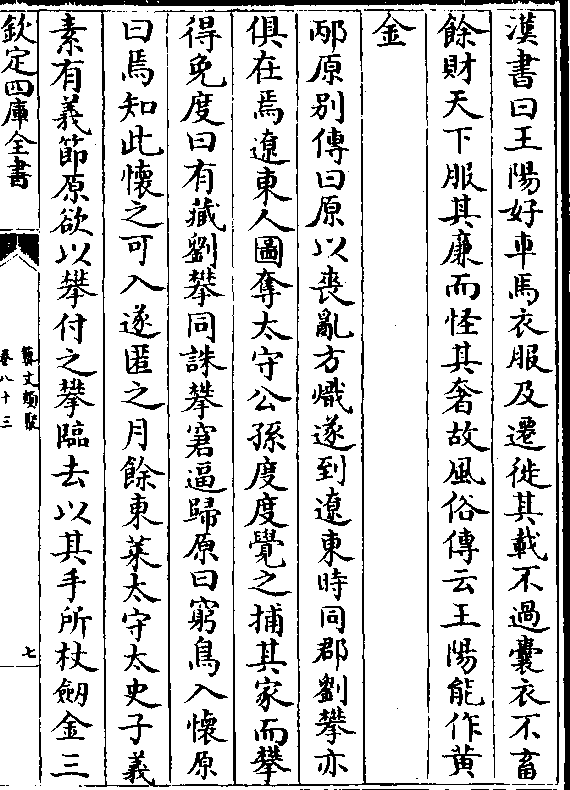 漢書曰王陽好車馬衣服及遷徙其載不過囊衣不畜
餘財天下服其廉而怪其奢故風俗傳云王陽能作黄
金
邴原別傳曰原以喪亂方熾遂到遼東時同郡劉攀亦
俱在焉遼東人圖奪太守公孫度度覺之捕其家而攀
得免度曰有藏劉攀同誅攀窘逼歸原曰窮鳥入懷原
曰焉知此懷之可入遂匿之月餘東萊太守太史子義
素有義節原欲以攀付之攀臨去以其手所杖劒金三
欽定四庫全書
藝文類聚
卷八十三
七